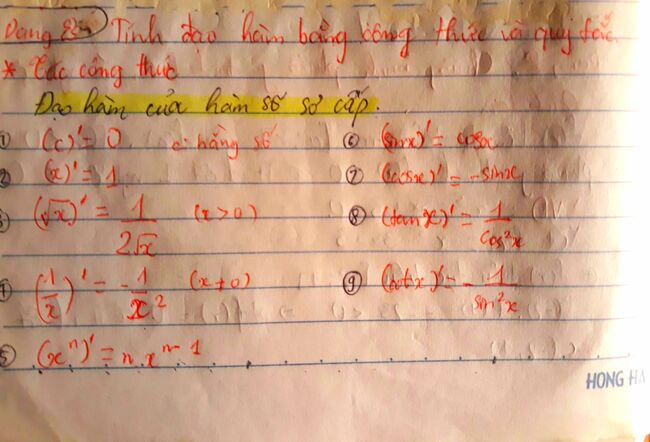 Dạng 2: Tính đạo hàm bằng công thức và quy tắc
* Các công thức
Đạo hàm của hàm số sơ cấp.
① (c)' = 0 c: hằng số
② (x)' = 1
③ (√x)' = 1/2√x (x>0)
④ (1/x)' = -1/x² (x≠0)
⑤ (xⁿ)' = n.xⁿ⁻¹
⑥ (sinx)' = cosx
⑦ (cosx)' = -sinx
⑧ (tanx)' = 1/cos²x
⑨ (cotx)' = -1/sin²x
HONG HA